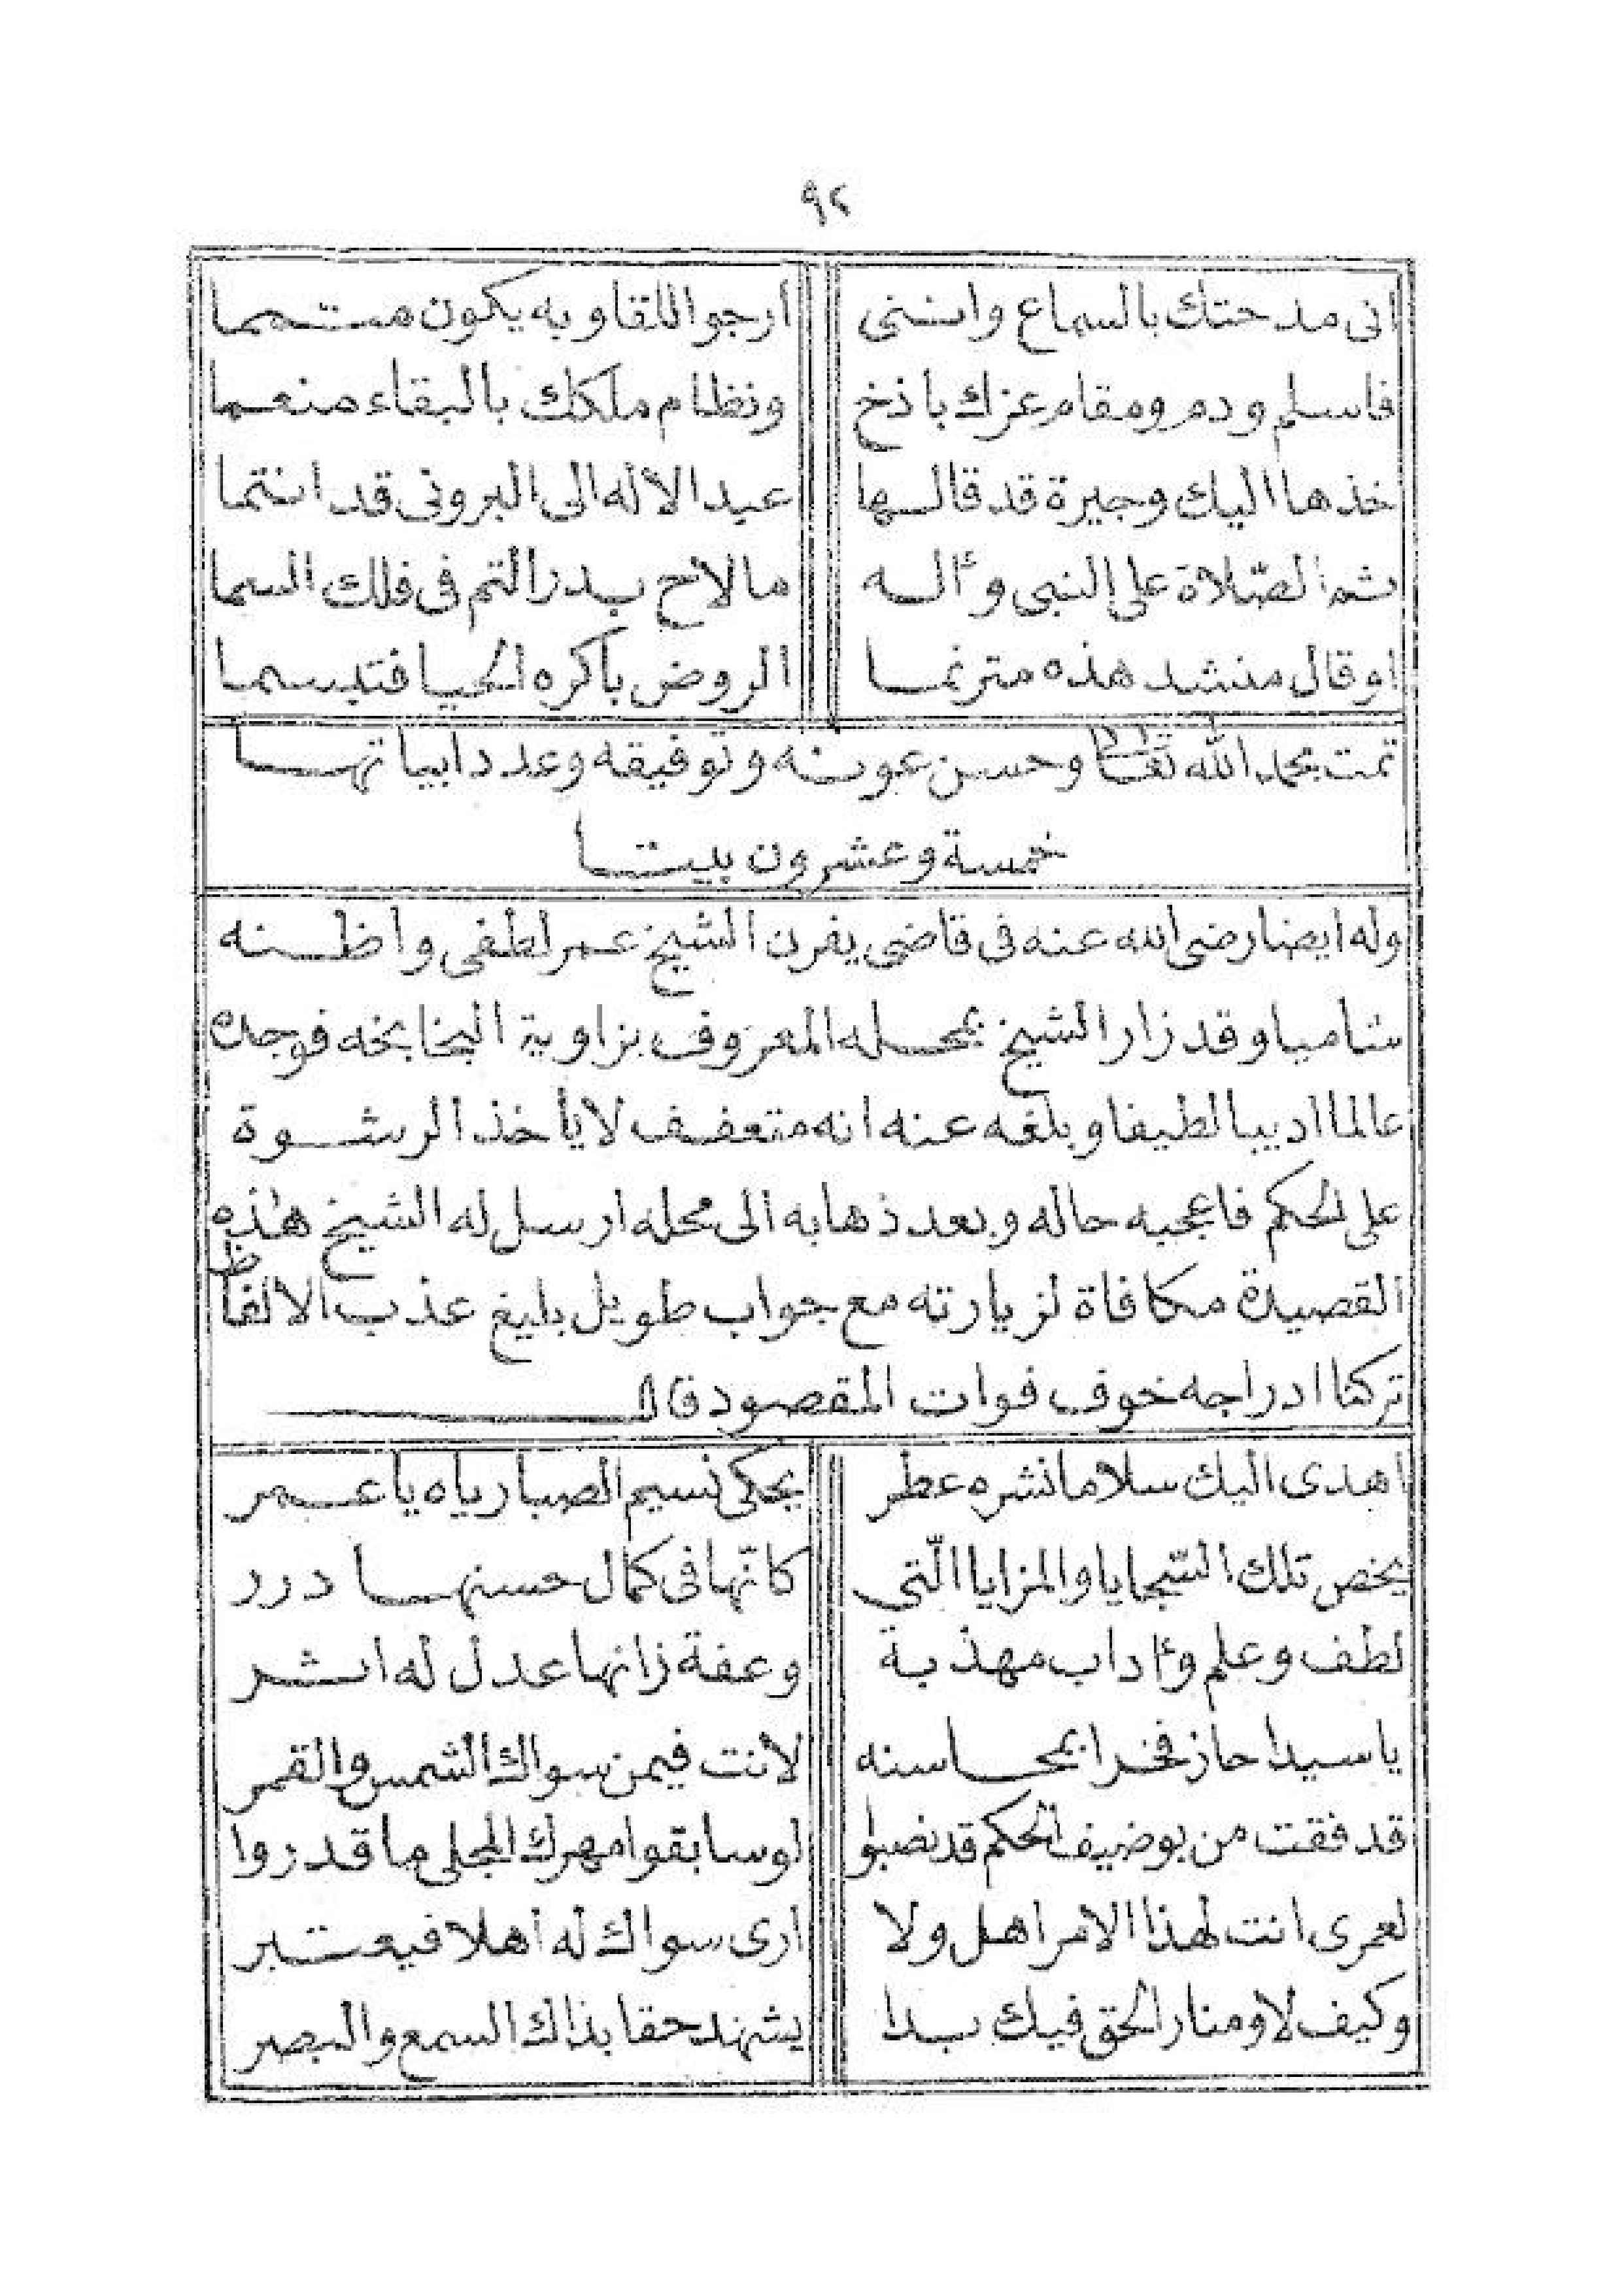 ٩٢
انى مدحتك بالسماع واننى ارجو اللقا وبه يكون متمما
فاسلم ودم ومقام عزك باذخ ونظام ملكك بالبقاء منعما
خذها اليك وجيزة قد قالها عبد الاله الى البرونى قد انتما
ثم الصّلاة على النبى وءاله ما لاح بدر التم فى فلك السما
او قال منشد هذه مترنما الروض باكره الحيا فتبسما
تمت بحمد الله تعالى وحسن عونه وتوفيقه وعدد ابياتها
خمسة وعشرون بيتا
وله ايضا رضى الله عنه فى قاضى يفرن الشيخ عمر لطفى واظنه
شاميا وقد زار الشيخ بمحله المعروف بزاوية البخابخه فوجده
عالما اديبا لطيفا وبلغه عنه انه متعفف لا ياخذ الرشوة
على الحكم فاعجبه حاله وبعد ذهابه الى محله ارسل له الشيخ هذه
القصيدة مكافاة لزيارته مع جواب طويل بليغ عذب الالفاظ
تركنا ادراجه خوف فوات المقصود قال
اهدى اليك سلاما نشره عطر يحكى نسيم الصبا رياه يا عمر
يخص تلك السّجايا والمزايا الّتى كانّها فى كمال حسنها درر
لطف وعلم وءاداب مهذبة وعفة زانها عدل له اثر
يا سيدا حاز فخرا بمحاسنه لانت فيمن سواك الشمس والقمر
قد فقت من بوضيف الحكم قد نصبوا لو سابقوا مهرك المجلى ما قدروا
لعمرى انت لهذا الامر اهل ولا ارى سواك له اهلا فيعتبر
وكيف لا ومنار الحق فيك بدا يشهد حقا بذاك السمع والبصر